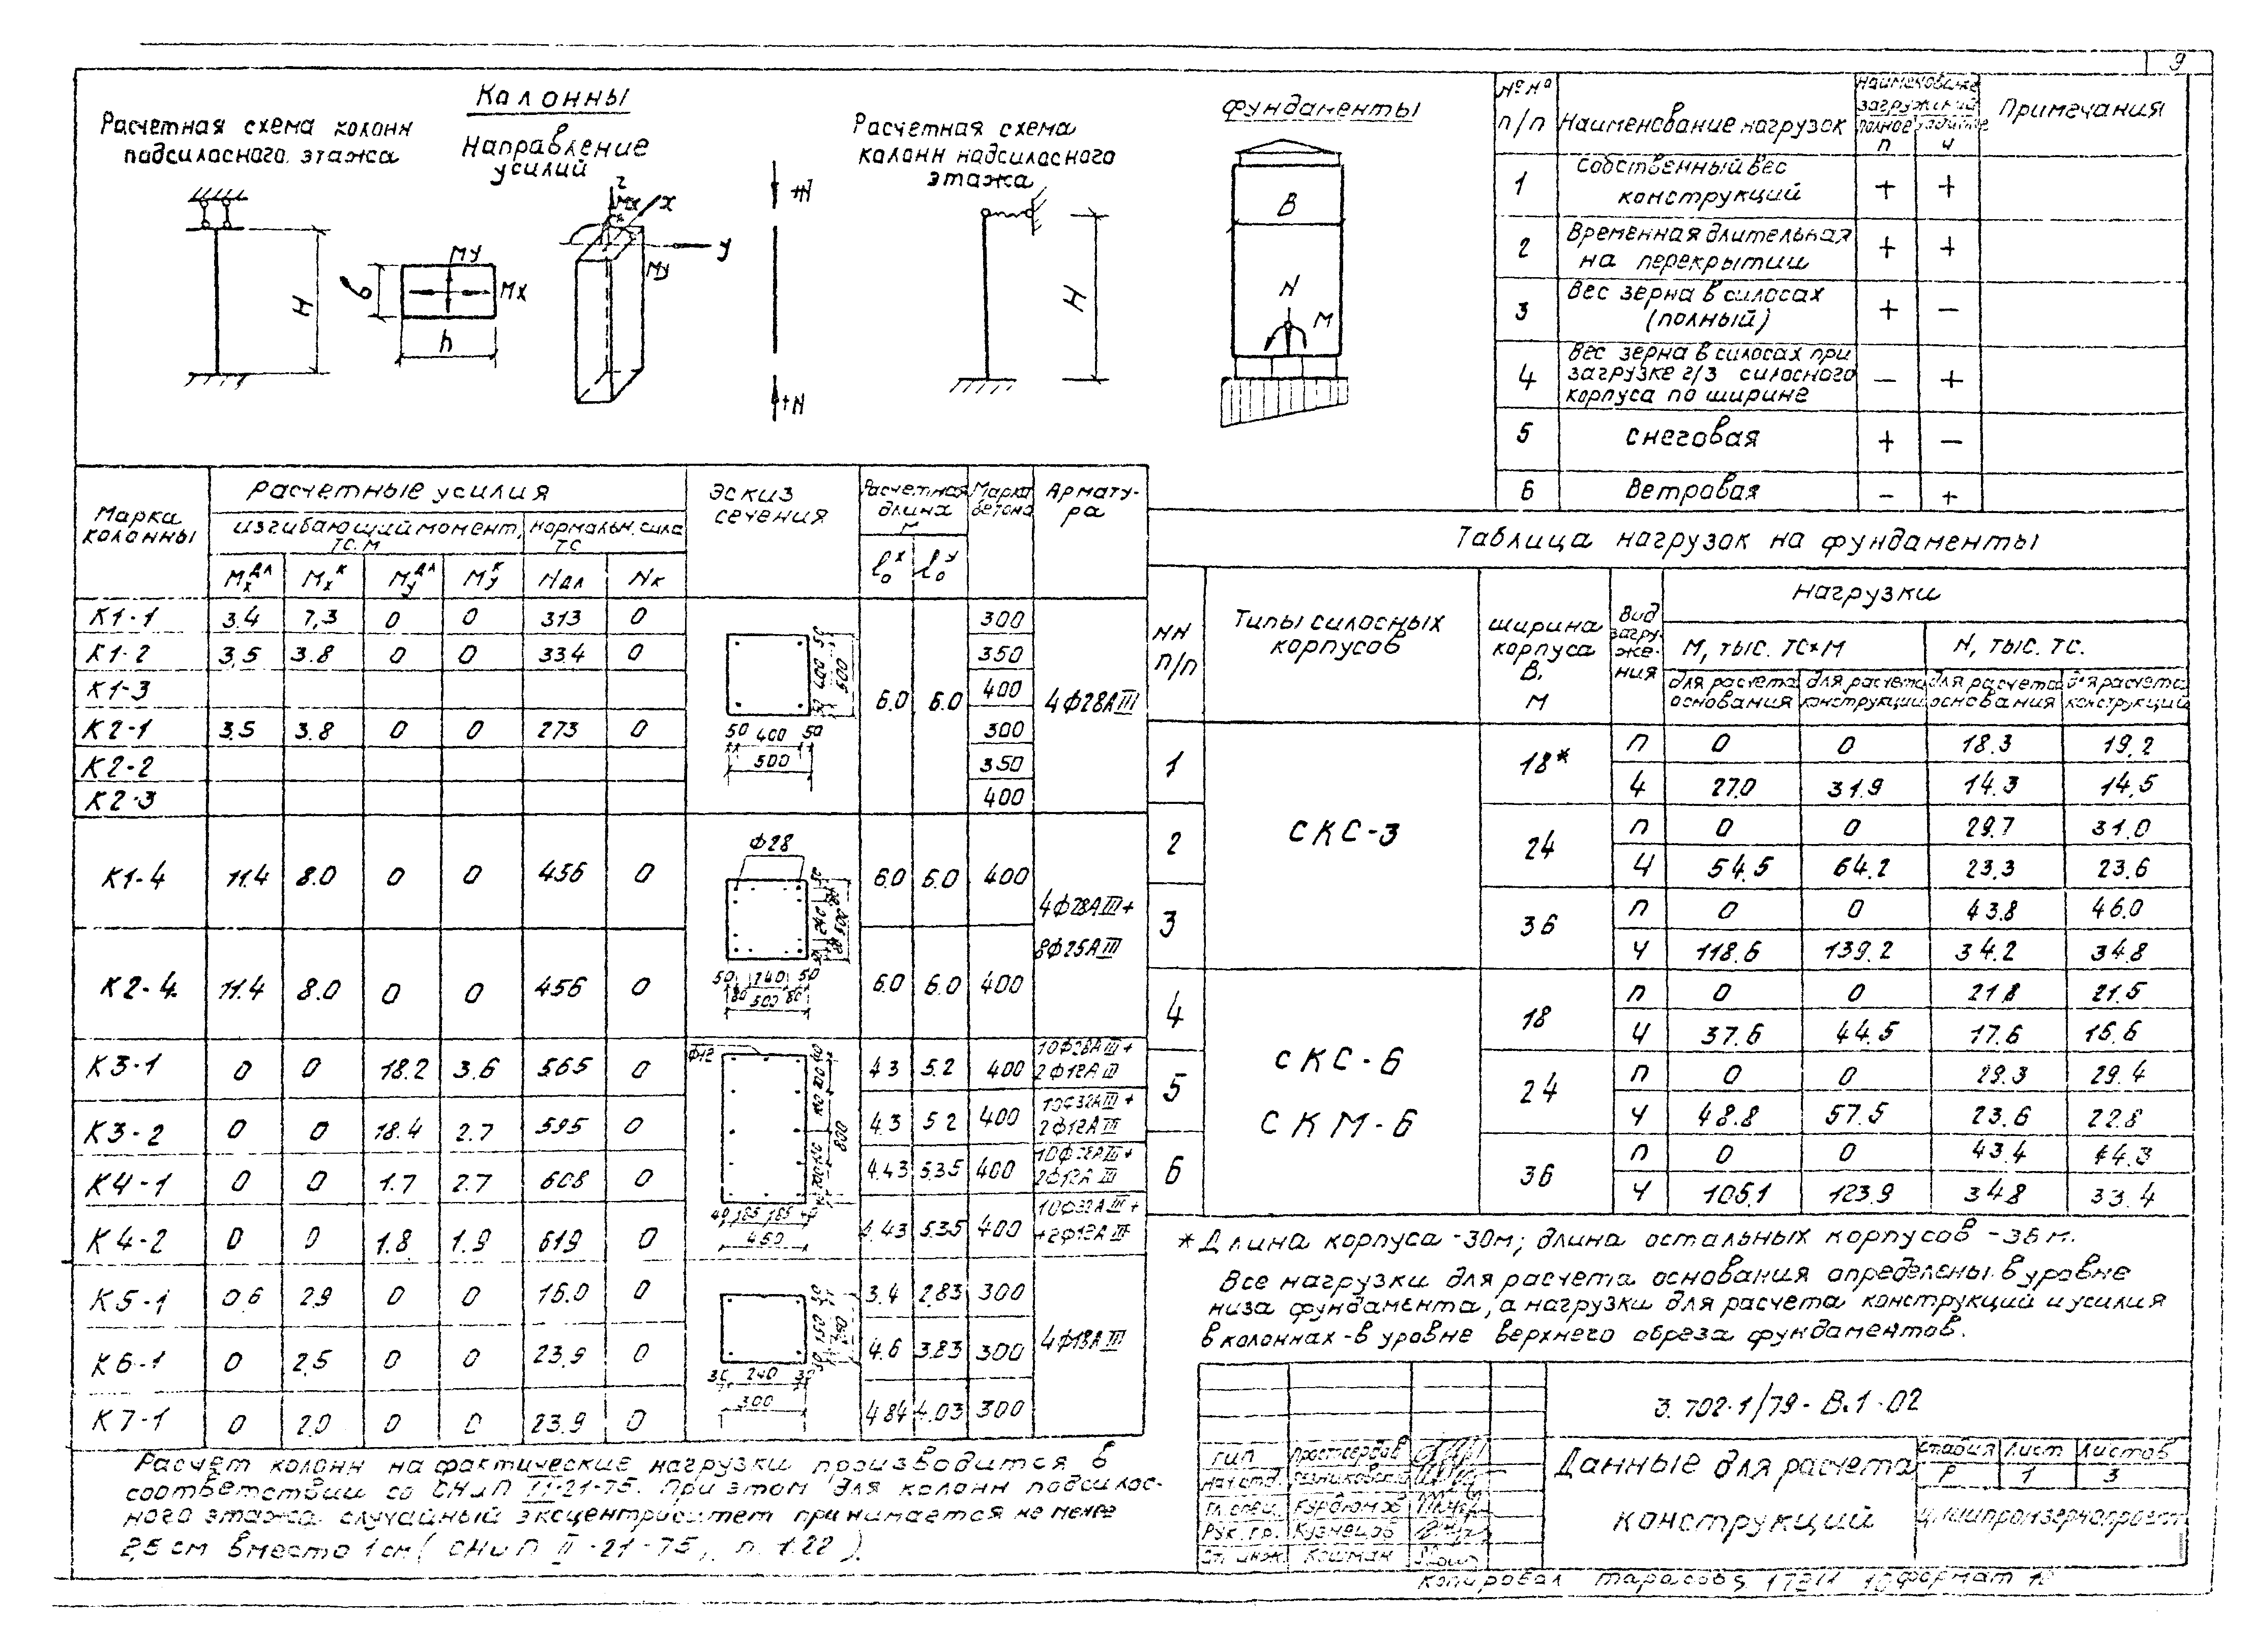 9
Колонны
Расчетная схема колонн
подсилосного этажа
Направление
усилий
Расчетная схема
колонн надсилосного
этажа
Фундаменты
H
b
h
My
Mx
z
Mx
x
y
My
+N
+N
H
B
N
M
№№ п/п Наименование нагрузок Примечания
полное
п ч
1 Собственный вес
конструкций + +
2 Временная длительная
на перекрытии + +
3 Вес зерна в силосах
(полный) + -
4 Вес зерна в силосах при
загрузке 2/3 силосного
корпуса по ширине - +
5 Снеговая + -
6 Ветровая - +
Марка
колонны
Расчетные усилия
изгибающий момент, тс.м
нормальн. сила тс
Эскиз
сечения
Расчетная
длина
м
Марка
бетона
Армату-
ра
Mx дл Mx к My дл My к Nдл Nк l₀ x l₀ y
К1-1 3.4 7,3 0 0 313 0 300
К1-2 3,5 3.8 0 0 334 0 350
К1-3 400
К2-1 3.5 3.8 0 0 273 0 300
К2-2 350
К2-3 400
50 400 50
500
6.0 6.0
4ф28АIII
К1-4 11.4 8.0 0 0 456 0 6.0 6.0 400
ф28
4ф28АIII+
8ф25АIII
К2-4 11.4 8.0 0 0 456 0 6.0 6.0 400
50 240 50
80 500 80
К3-1 0 0 18.2 3.6 565 0 4.3 5.2 400 10ф28АIII+
2ф12АIII
ф12
К3-2 0 0 18.4 2.7 595 0 4.3 5.2 400 10ф32АIII+
2ф12АIII
К4-1 0 0 1.7 2.7 608 0 4.43 5.35 400 10ф28АIII+
2ф12АIII
К4-2 0 0 1.8 1.9 619 0 4.43 5.35 400 10ф32АIII+
+2ф12АIII
800
40 185 185 40
450
К5-1 0,6 2.9 0 0 16.0 0 3.4 2.83 300
К6-1 0 2,5 0 0 23.9 0 4.6 3.83 300
К7-1 0 2.0 0 0 23.9 0 4.84 4.03 300
30 240 30
300
4ф18АIII
Расчет колонн на фактические нагрузки производится в
соответствии со СНиП II-21-75. При этом для колонн подсилос-
ного этажа случайный эксцентриситет принимается не менее
2,5 см вместо 1 см (СНиП II-21-75, п. 1.22).
Таблица нагрузок на фундаменты
NN
п/п
Типы силосных
корпусов
Ширина
корпуса
В,
м
Вид
загру-
же-
ния
Нагрузки
М, тыс. тс×м N, тыс. тс.
для расчета основания для расчета конструкций для расчета основания для расчета конструкций
1 СКС-3 18* п 0 0 18.3 19.2
ч 27.0 31.9 14.3 14.5
2 24 п 0 0 29.7 31.0
ч 54.5 64.2 23.3 23.6
3 36 п 0 0 43.8 46.0
ч 118.6 139.2 34.2 34.8
4 СКС-6 18 п 0 0 21.8 21.5
ч 37.6 44.5 17.6 16.6
5 СКМ-6 24 п 0 0 29.3 29.4
ч 48.8 57.5 23.6 22.8
6 36 п 0 0 43.4 44.3
ч 105.1 123.9 34.8 33.4
* Длина корпуса - 30м; длина остальных корпусов - 36 м.
Все нагрузки для расчета основания определены в уровне
низа фундамента, а нагрузки для расчета конструкций и усилия
в колоннах - в уровне верхнего обреза фундаментов.
3.702-1/79-В.1-02
ГИП
Нач.отд.
Гл.спец. Курдюмов
Рук.гр. Кузнецов
Ст.инж. Кошман
Данные для расчета
конструкций
Стадия Лист Листов
Р 1 3
ЦНИИпромзернопроект
Копировал Тарасова Формат